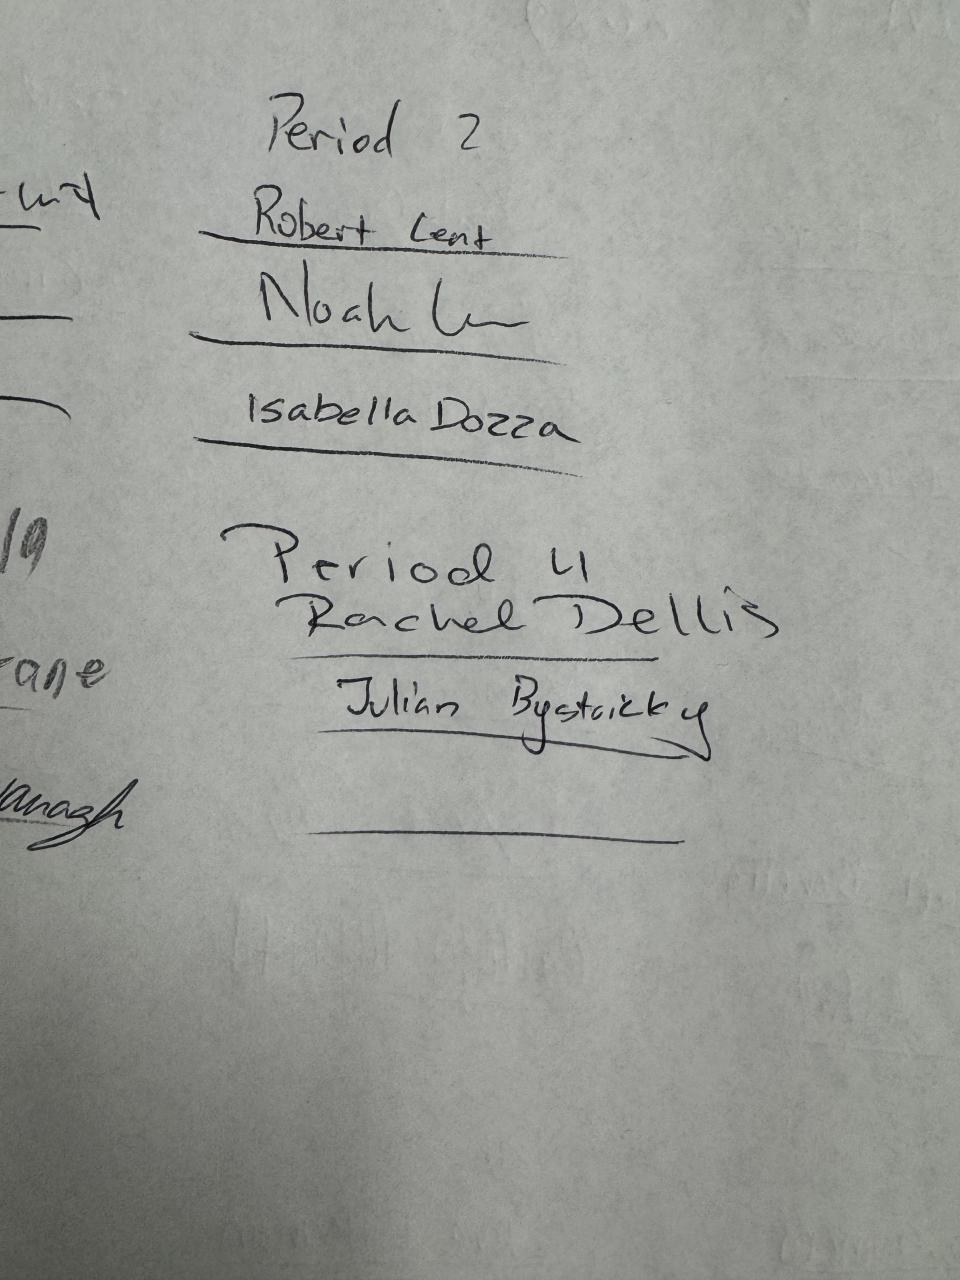 Period 2
Robert Lent
Noah
Isabella Dozza
/19
Period 4
Rachel Dellis
Julian Bystricky